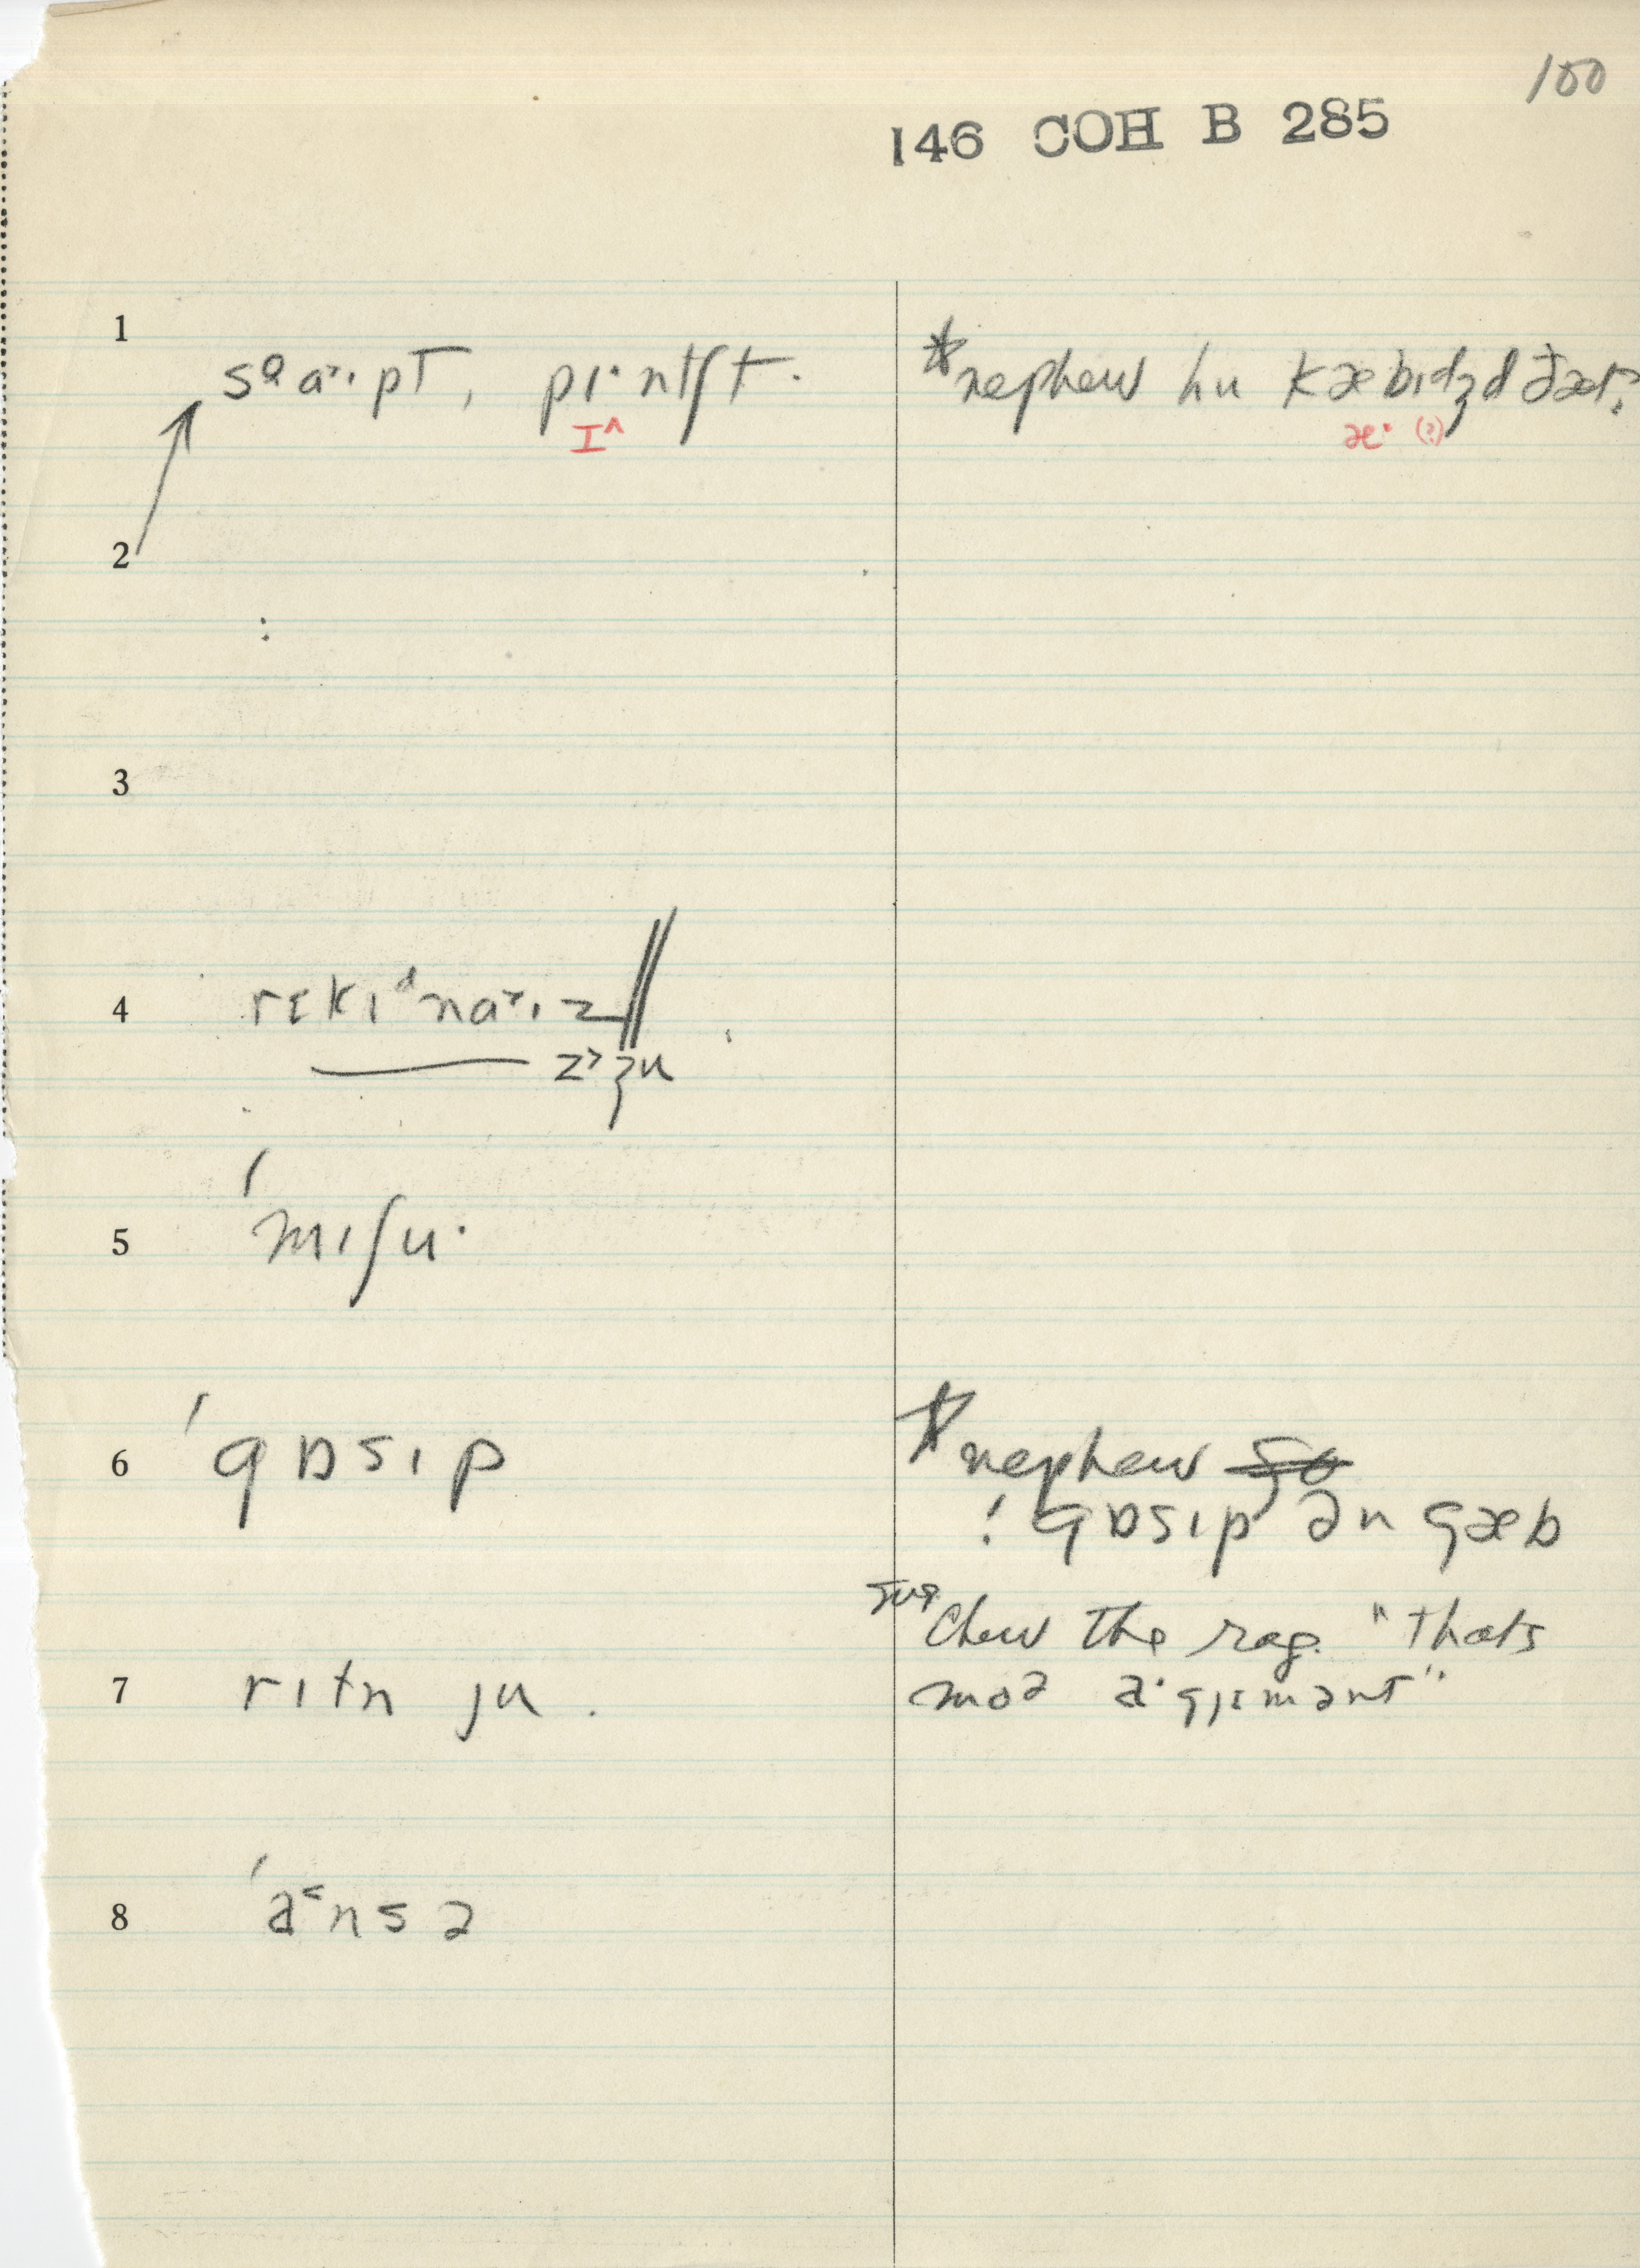 100
146 COH B 285
1 sᵊa˒ɪpt, pɪ·ntʃt. *nephew hu kæbɪdʒd ðæt?
ɪ^ æ· (?)
2
:
3
4 rɛkɪᵈna˒ɪz
z˒ʒu
5 ˈmɪʃu·
6 ˈgɒsɪp *nephew go
! gɒsɪp ən gæb
sug Chew the rag. "thats
7 rɪtn ju. moə a·gjɛmənt"
8 ˈa˂nsə